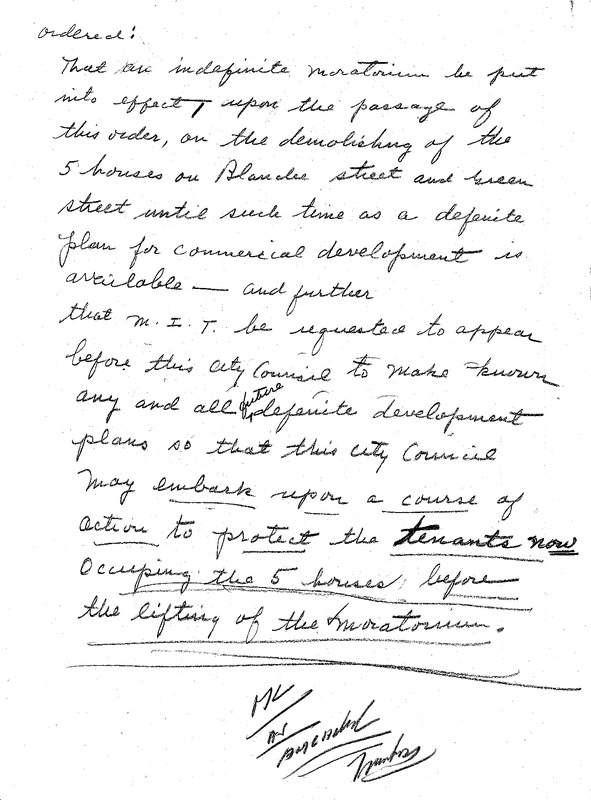 ordered:
That an indefinite moratorium be put
into effect, upon the passage of
this order, on the demolishing of the
5 houses on Blanche street and Green
street until such time as a definite
plan for commercial development is
available — and further
that M.I.T. be requested to appear
before this City Council to make known
any and all future definite development
plans so that this City Council
may embark upon a course of
action to protect the tenants now
Occupying the 5 houses before
the lifting of the moratorium.
OK
as
Amended